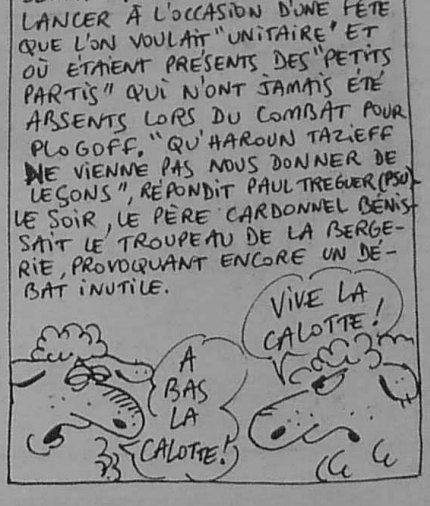 LANCER À L'OCCASION D'UNE FÊTE
QUE L'ON VOULAIT "UNITAIRE" ET
OÙ ÉTAIENT PRÉSENTS DES "PETITS
PARTIS" QUI N'ONT JAMAIS ÉTÉ
ABSENTS LORS DU COMBAT POUR
PLOGOFF. "QU'HAROUN TAZIEFF
NE VIENNE PAS NOUS DONNER DE
LEÇONS", RÉPONDIT PAUL TREGUER (PSU).
LE SOIR, LE PÈRE CARDONNEL BÉNIS-
SAIT LE TROUPEAU DE LA BERGE-
RIE, PROVOQUANT ENCORE UN DÉ-
BAT INUTILE.
VIVE LA
CALOTTE!
A
BAS
LA
CALOTTE!